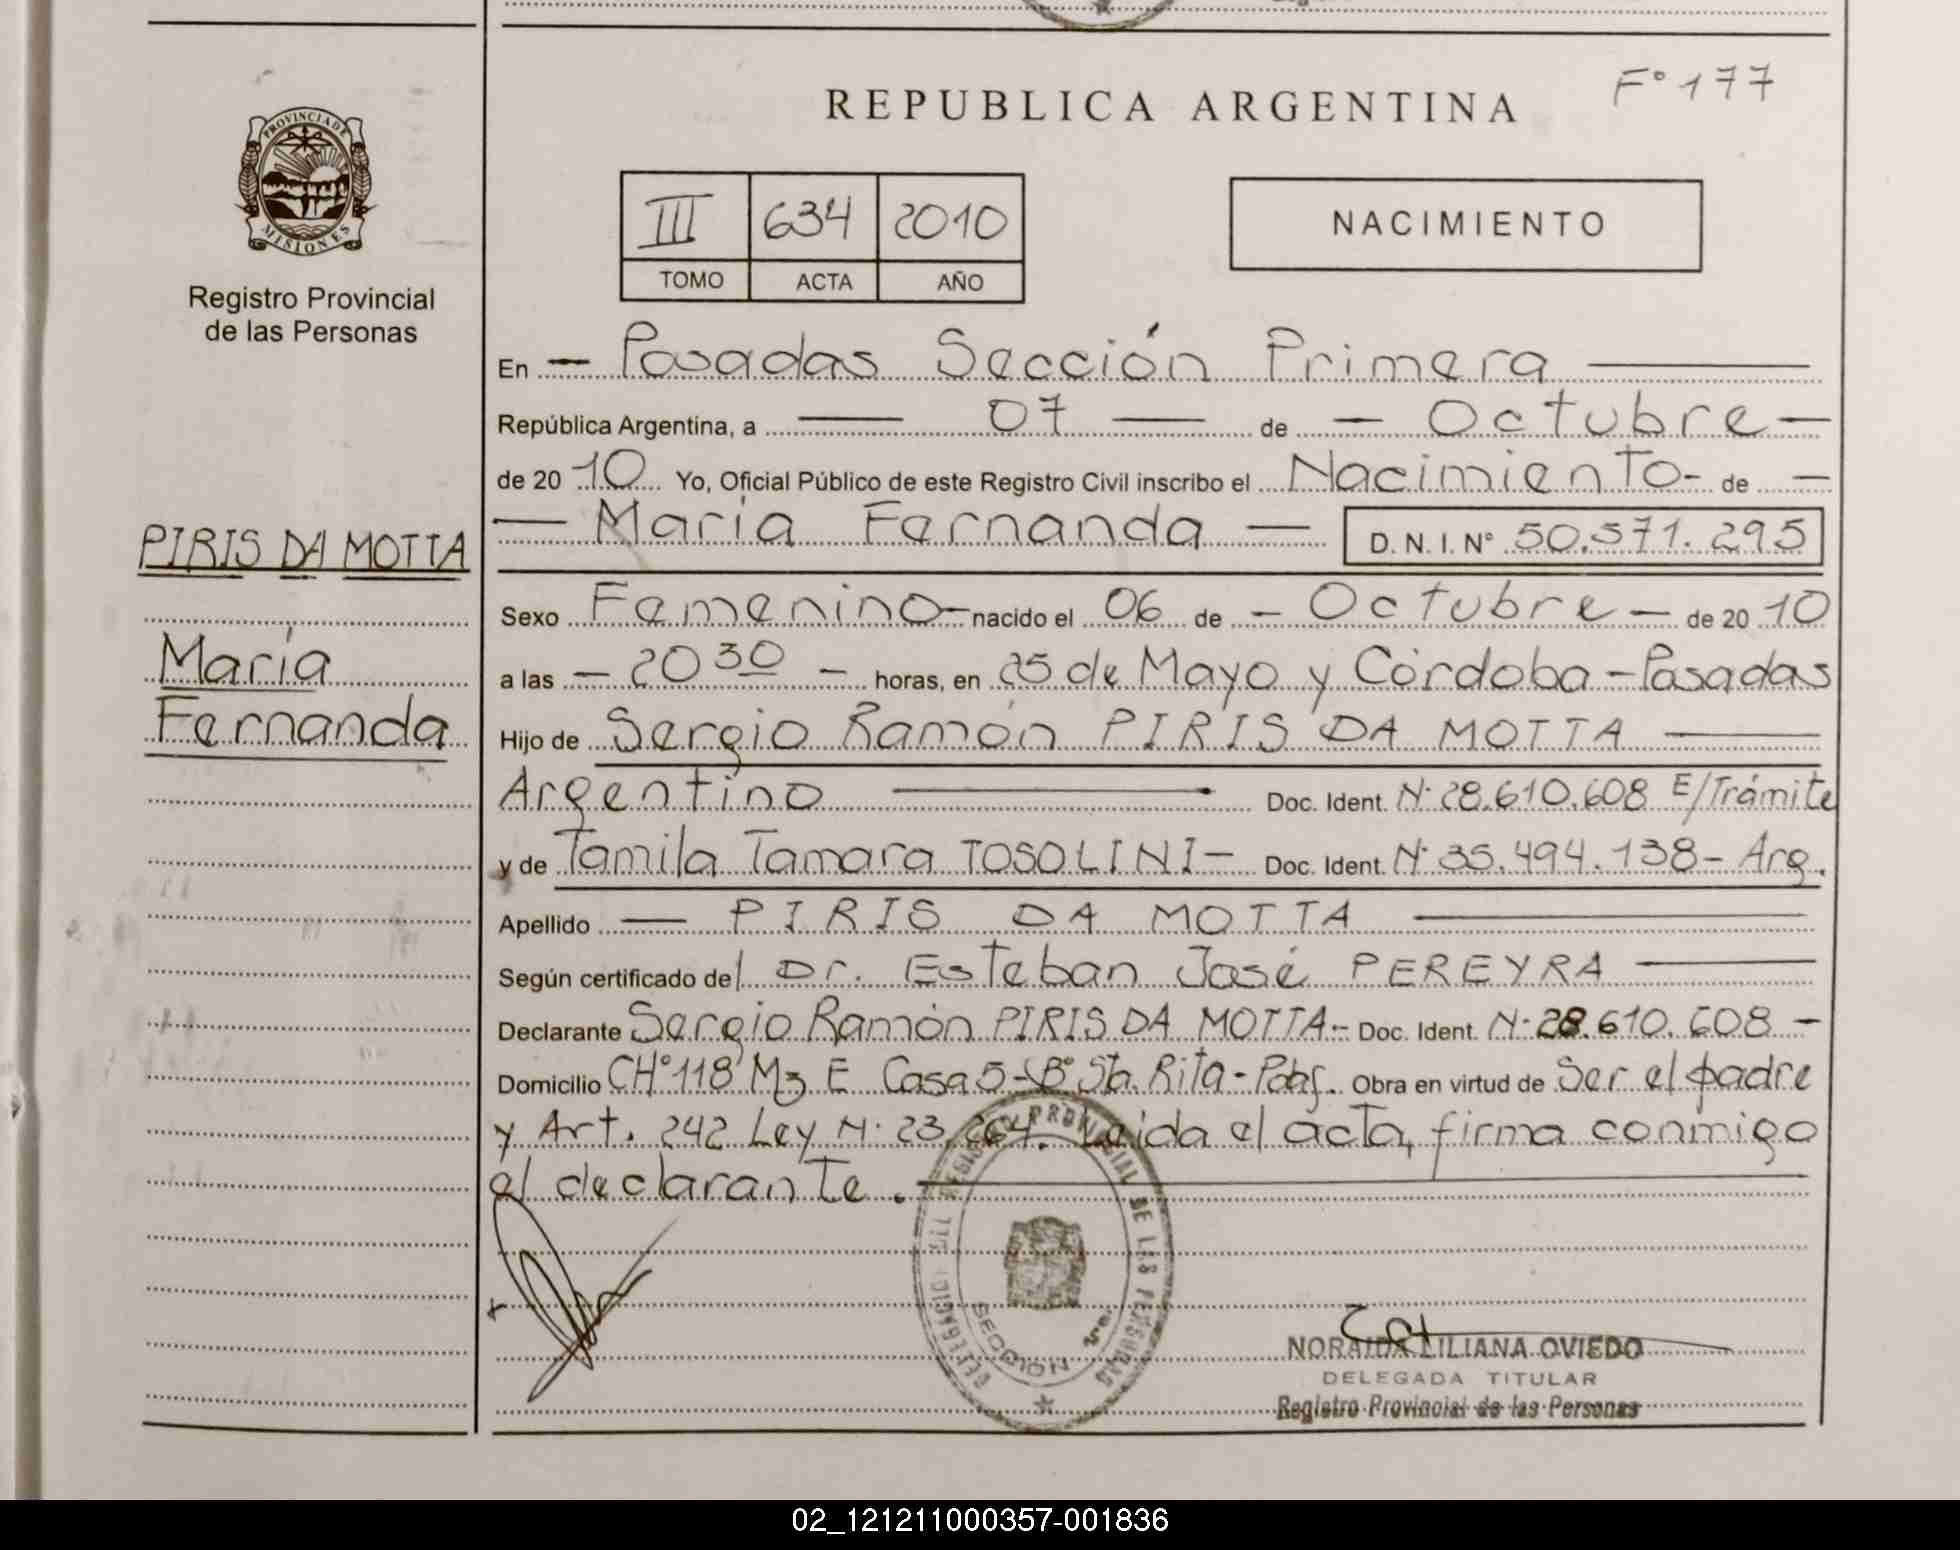 F° 177
REPUBLICA ARGENTINA
PROVINCIA DE
MISIONES
III 634 2010
TOMO ACTA AÑO
NACIMIENTO
Registro Provincial
de las Personas
En — Posadas Sección Primera —
República Argentina, a — 07 — de — Octubre —
de 20 10 Yo, Oficial Público de este Registro Civil inscribo el Nacimiento - de —
— María Fernanda — D. N. I. N° 50.571.295
PIRIS DA MOTTA
María
Fernanda
Sexo Femenino - nacido el 06 de — Octubre — de 20 10
a las — 20 30 — horas, en 25 de Mayo y Córdoba - Posadas
Hijo de Sergio Ramón PIRIS DA MOTTA —
Argentino — Doc. Ident. N· 28.610.608 E/Trámite
y de Tamila Tamara TOSOLINI — Doc. Ident. N· 35.494.138 - Arg.
Apellido — PIRIS DA MOTTA —
Según certificado del Dr. Esteban José PEREYRA —
Declarante Sergio Ramón PIRIS DA MOTTA - Doc. Ident. N· 28.610.608 —
Domicilio CH° 118 Mz E Casa 5 - B° Sta. Rita - Obra en virtud de Ser el padre
y Art. 242 Ley N· 23.264. Leida el acta, firma conmigo
el declarante. —
REGISTRO PROVINCIAL DE LAS PERSONAS
SECCION 1ra.
NORAIDA LILIANA OVIEDO
DELEGADA TITULAR
Registro Provincial de las Personas
02_121211000357-001836